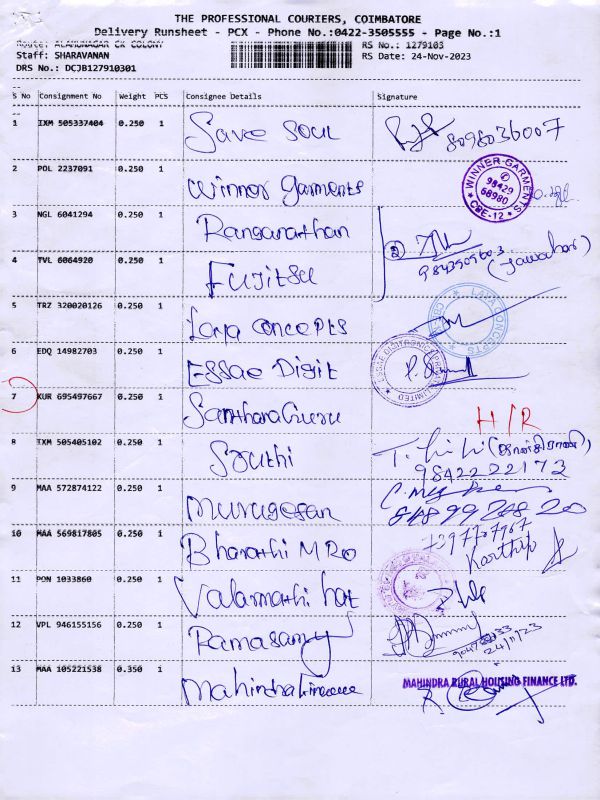 THE PROFESSIONAL COURIERS, COIMBATORE
Delivery Runsheet - PCX - Phone No.:0422-3505555 - Page No.:1
Route: ALAMUNAGAR CK COLONY RS No.: 1279103
Staff: SHARAVANAN RS Date: 24-Nov-2023
DRS No.: DCJB127910301
S No Consignment No Weight PCS Consignee Details Signature
1 IXM 505337404 0.250 1 Save soul 8098036007
2 POL 2237091 0.250 1 Winner garments WINNER GARMENTS 98429 68980 CBE-12
3 NGL 6041294 0.250 1 Ranganathan
4 TVL 6064920 0.250 1 Fujitsu 2 (Jawahar)
5 TRZ 320020126 0.250 1 Laya concepts LAYA CONCEPTS
6 EDQ 14982703 0.250 1 Essae Digit ESSAE DIGITRONICS PRIVATE LIMITED
7 KUR 695497667 0.250 1 Santhanaguru H/R
8 IXM 505405102 0.250 1 Southi 9842222173
9 MAA 572874122 0.250 1 Murugesan
10 MAA 569817805 0.250 1 Bharathi MRO Karthik
11 PON 1033860 0.250 1 Valarmathi hat
12 VPL 946155156 0.250 1 Ramasamy 24/11/23
13 MAA 105221538 0.350 1 Mahindra finance MAHINDRA RURAL HOUSING FINANCE LTD.